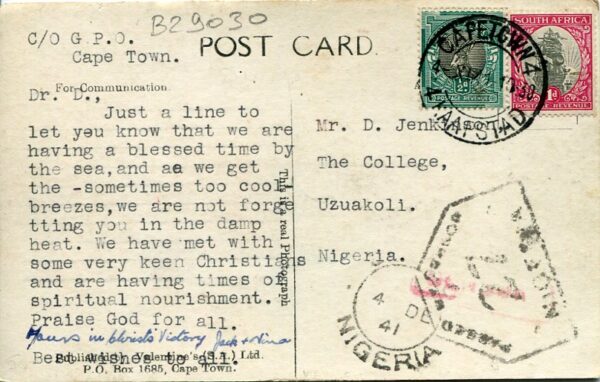 B29030
C/O G.P.O.
Cape Town.
POST CARD.
For Communication
Dr. D.,
Just a line to
let you know that we are
having a blessed time by
the sea, and ae we get
the -sometimes too cool
breezes, we are not forge
tting you in the damp
heat. We have met with
some very keen Christians
and are having times of
spiritual nourishment.
Praise God for all.
Yours in Christ's Victory Jack + Nina
Best wishes to all.
Published by Valentine's (S.A.) Ltd.
P.O. Box 1685, Cape Town.
This is a real Photograph
SOUTH AFRICA
1d
POSTAGE REVENUE
POSTAGE REVENUE
CAPE TOWN
KAAPSTAD
Mr. D. Jenk
The College,
Uzuakoli.
Nigeria.
4 DE
41
NIGERIA
PASSED